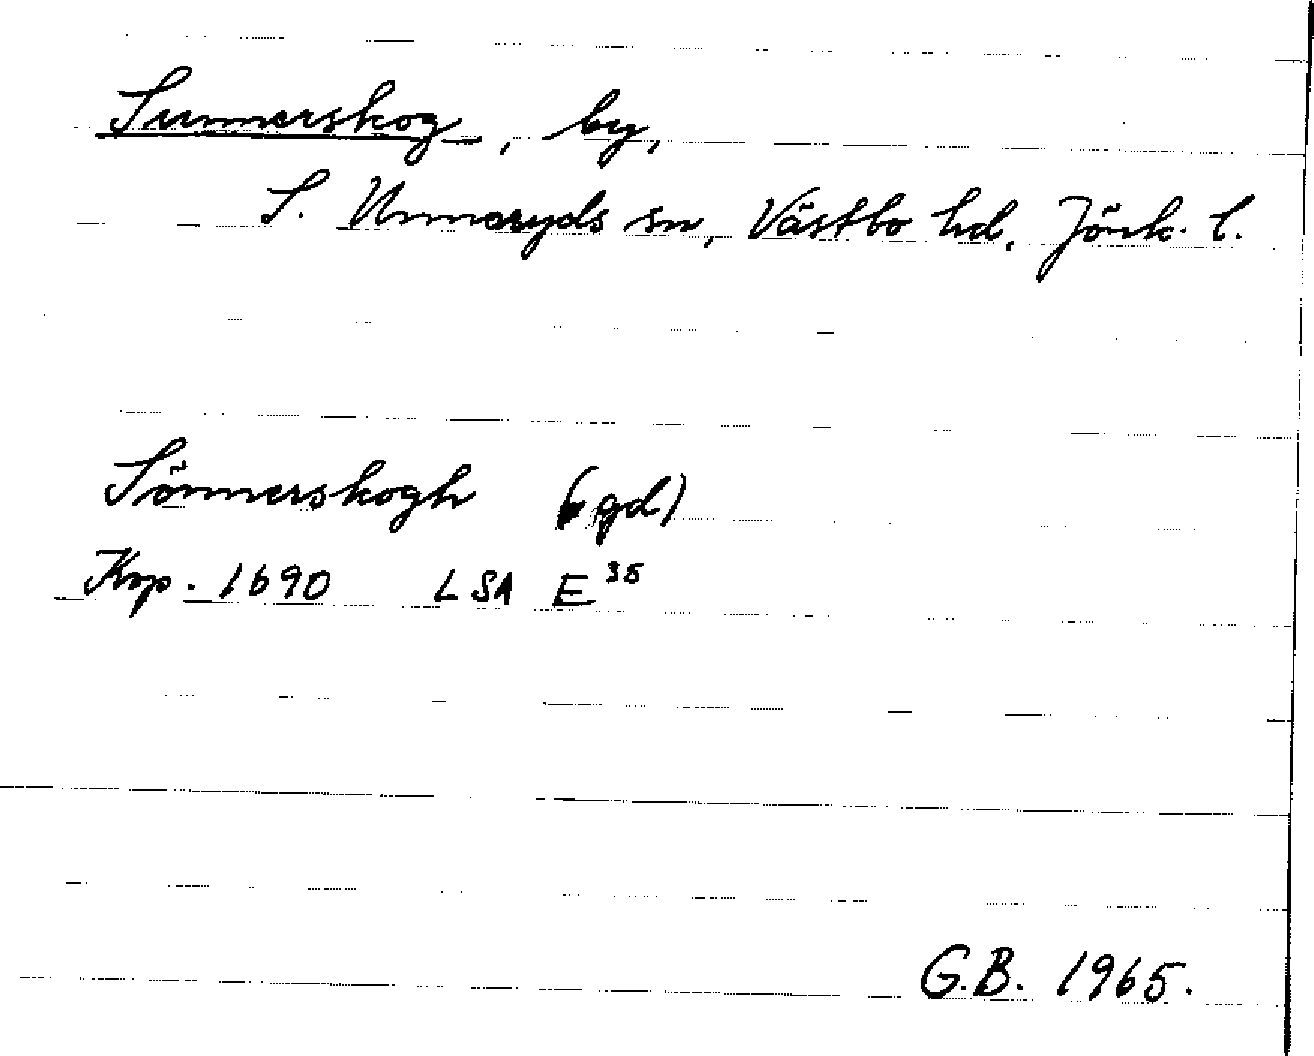 Sunnerskog, by,
S. Unnaryds sn, Västbo hd, Jönk. l.
Sönnerskogh (gd)
Krp. 1690 LSA E 35
G.B. 1965.